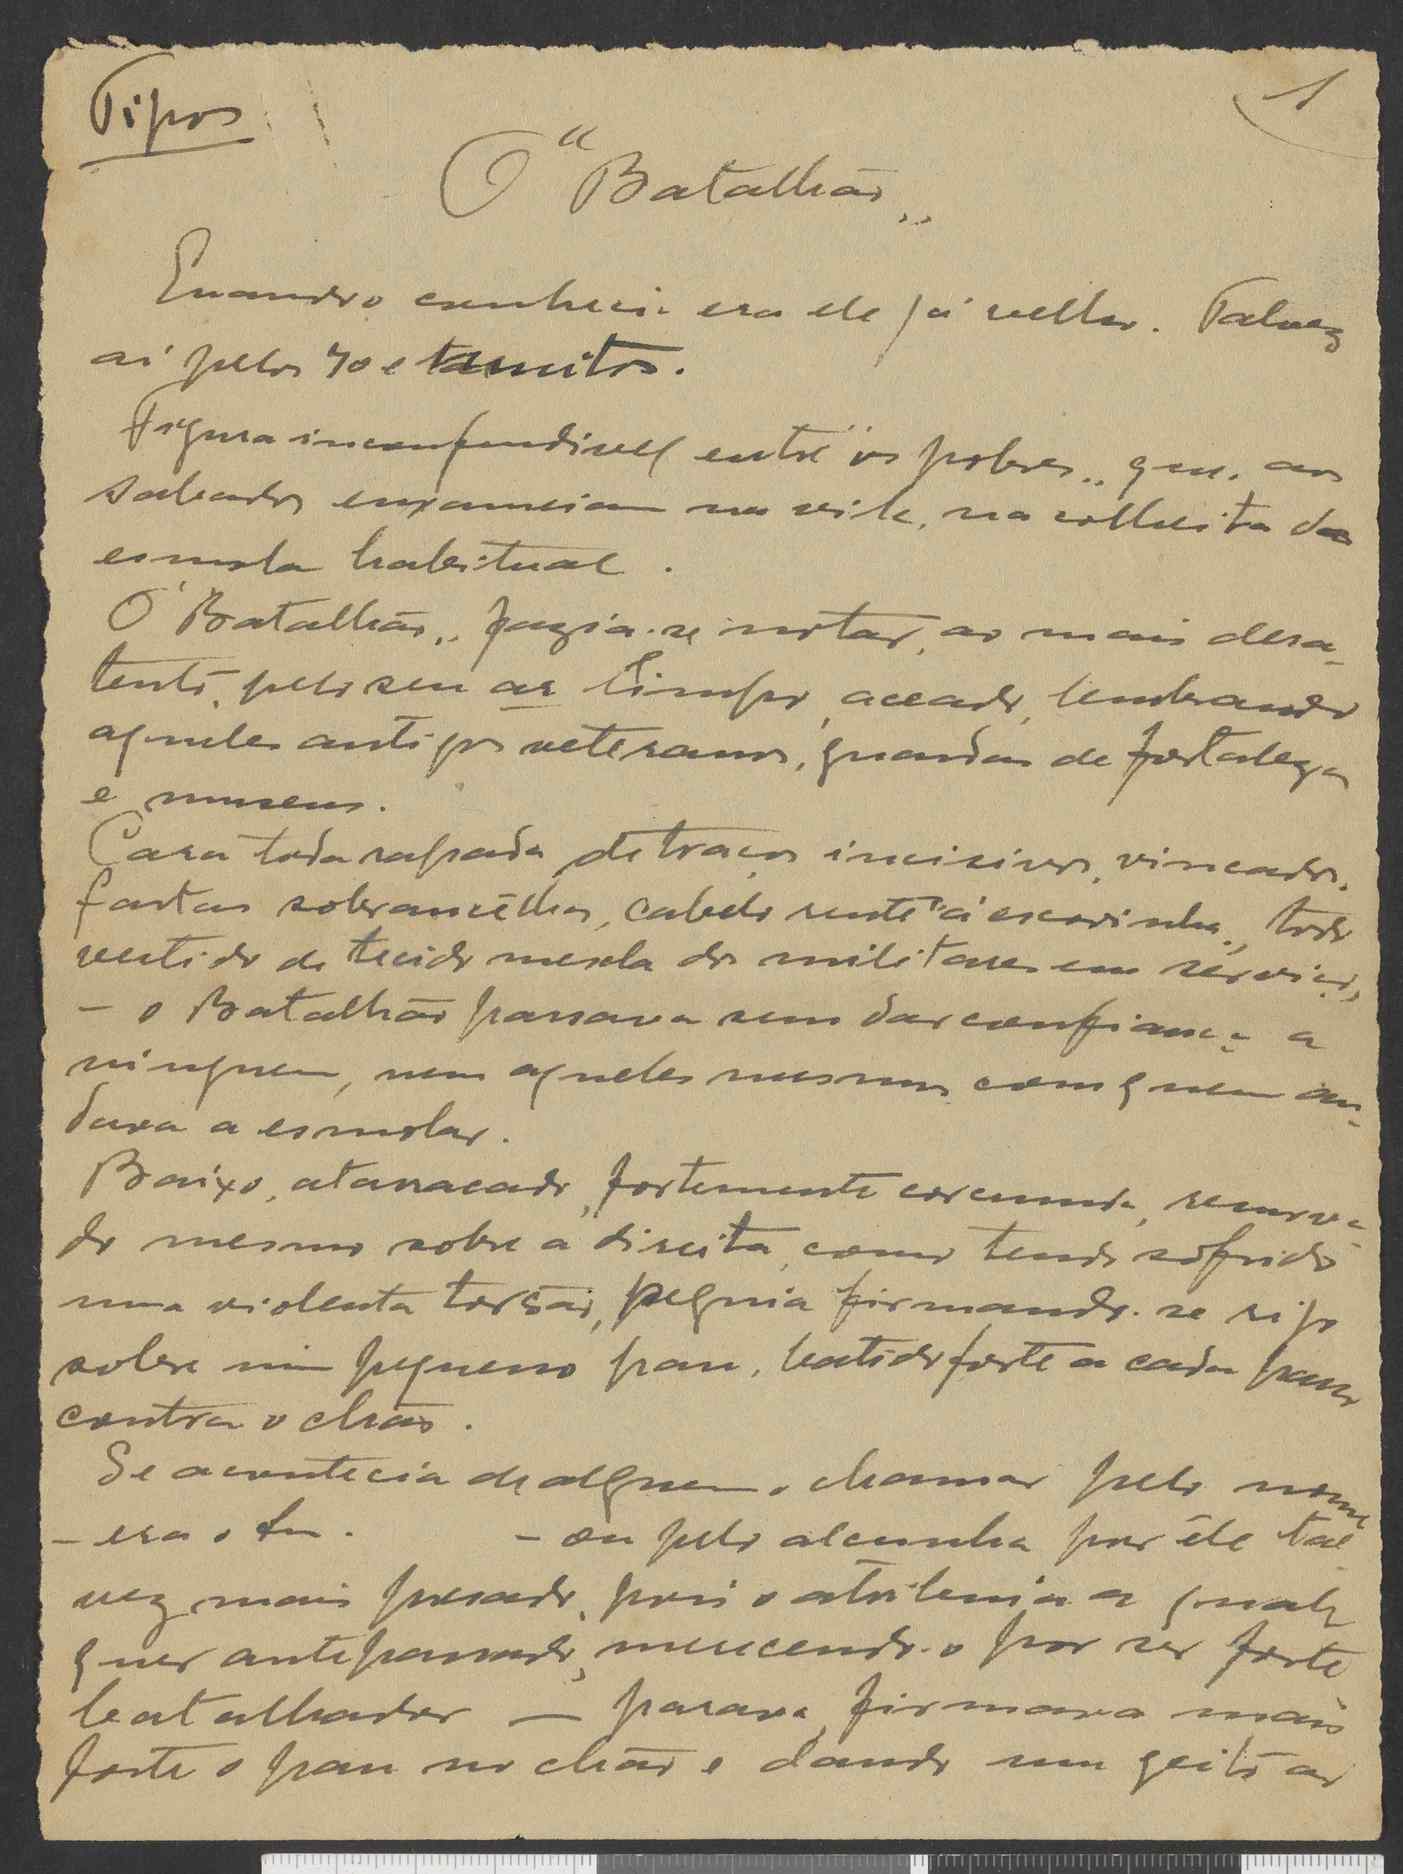 Tipos
1
O "Batalhão„
Quando o conheci era ele já velho. Talvez
aí pelos 70 e tantos.
Figura inconfundivel entre "os pobres„ que, aos
sabados enxameiam na vila, na colheita da
esmola habitual.
O "Batalhão„ fazia-se notar, ao mais desa-
tento, pelo seu ar limpo, aceado, lembrando
aqueles antigos veteranos, guardas de fortaleza
e museus.
Cara toda rapada de traços incisivos, vincados,
fartas sobrancêlhas, cabelo rente "á escovinha„, todo
vestido de tecido mescla dos militares em serviço,
– o Batalhão passava sem dar confiança a
ninguem, nem aqueles mesmos com quem an-
dava a esmolar.
Baixo, atarracado, fortemente corcunda,
do mesmo sobre a direita, como tendo sofrido
uma violenta torsão, seguia firmando-se rijo
sobre um pequeno pau, batido forte a cada passo
contra o chão.
Se acontecia de alguem o chamar pelo nome
– era o – ou pelo alcunha por êle tal
vez mais prezado, pois o atribuia a qual
quer antepassado, merecendo-o por ser forte
batalhador — parava, firmava mais
forte o pau no chão e dando um geito ao